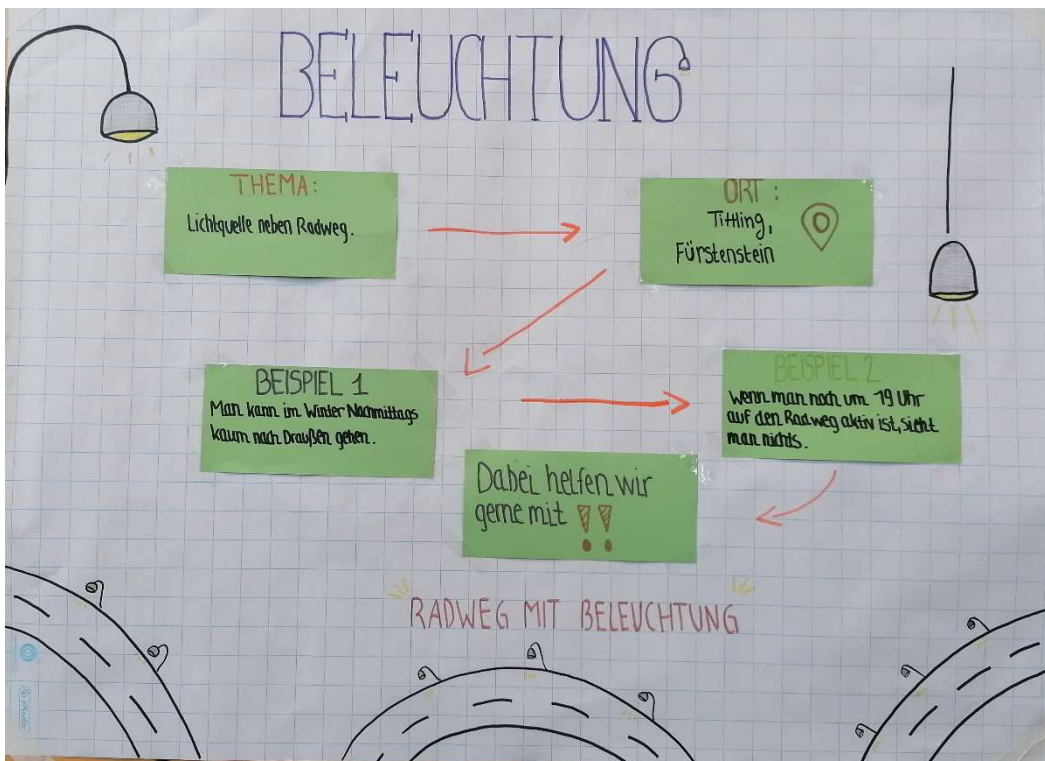 BELEUCHTUNG
THEMA:
Lichtquelle neben Radweg.
ORT :
Tittling,
Fürstenstein
BEISPIEL 1
Man kann im Winter Nachmittags
kaum nach Draußen gehen.
BEISPIEL 2
Wenn man noch um 19 Uhr
auf den Radweg aktiv ist, sieht
man nichts.
Dabei helfen wir
gerne mit !!
RADWEG MIT BELEUCHTUNG